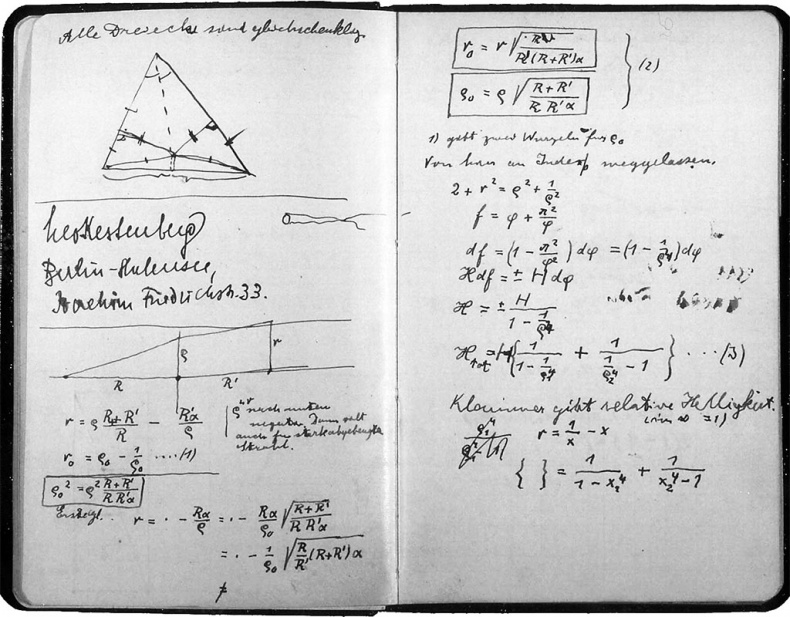 Alle Dreiecke sind gleichschenklig.
Leo Kestenberg
Berlin-Halensee,
Joachim Friedrichstr. 33.
ρ
r
R
R'
r = ρ (R+R')/R - R'α/ρ
ρ nach unten
negativ. Dann gilt
auch für stark abgebeugte
Strahl.
r₀ = ρ₀ - 1/ρ₀ .....(1)
ρ₀² = ρ² (R+R')/(R R'α)
r = · - Rα/ρ = · - Rα/ρ₀ √((R+R')/(R R'α))
= · - 1/ρ₀ √(R/R' (R+R')α)
r₀ = r √(R/(R'(R+R')α))
ρ₀ = ρ √((R+R')/(R R'α))
} (2)
1) gibt zwei Wurzeln für ρ₀
Von hier an Index weggelassen.
2 + r² = ρ² + 1/ρ²
f = φ + π²/φ
df = (1 - π²/φ²) dφ = (1 - 1/ρ⁴) dφ
H df = ± H dφ
H = ± H/(1 - 1/ρ⁴)
H_tot = H { 1/(1 - 1/ρ₁⁴) + 1/(1/ρ₂⁴ - 1) } ....(3)
Klammer gibt relative Helligkeit.
(in ∞ = 1)
r = 1/x - x
{ } = 1/(1 - x₁⁴) + 1/(x₂⁴ - 1)